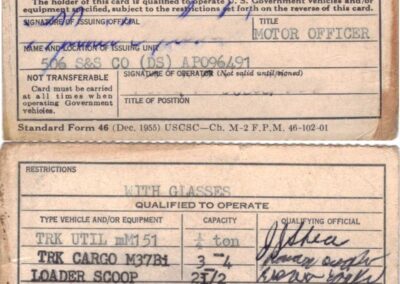 The holder of this card is qualified to operate U. S. Government vehicles and/or
equipment specified, subject to the restrictions set forth on the reverse of this card.
SIGNATURE OF ISSUING OFFICIAL
TITLE
MOTOR OFFICER
NAME AND LOCATION OF ISSUING UNIT
506 S&S CO (DS) APO96491
NOT TRANSFERABLE
Card must be carried
at all times when
operating Government
vehicles.
SIGNATURE OF OPERATOR (Not valid until signed)
TITLE OF POSITION
Standard Form 46 (Dec. 1955) USCSC—Ch. M-2 F.P.M. 46-102-01
RESTRICTIONS
WITH GLASSES
QUALIFIED TO OPERATE
TYPE VEHICLE AND/OR EQUIPMENT
CAPACITY
QUALIFYING OFFICIAL
TRK UTIL mM151
ton
TRK CARGO M37B1
3 4
LOADER SCOOP
2 1/2